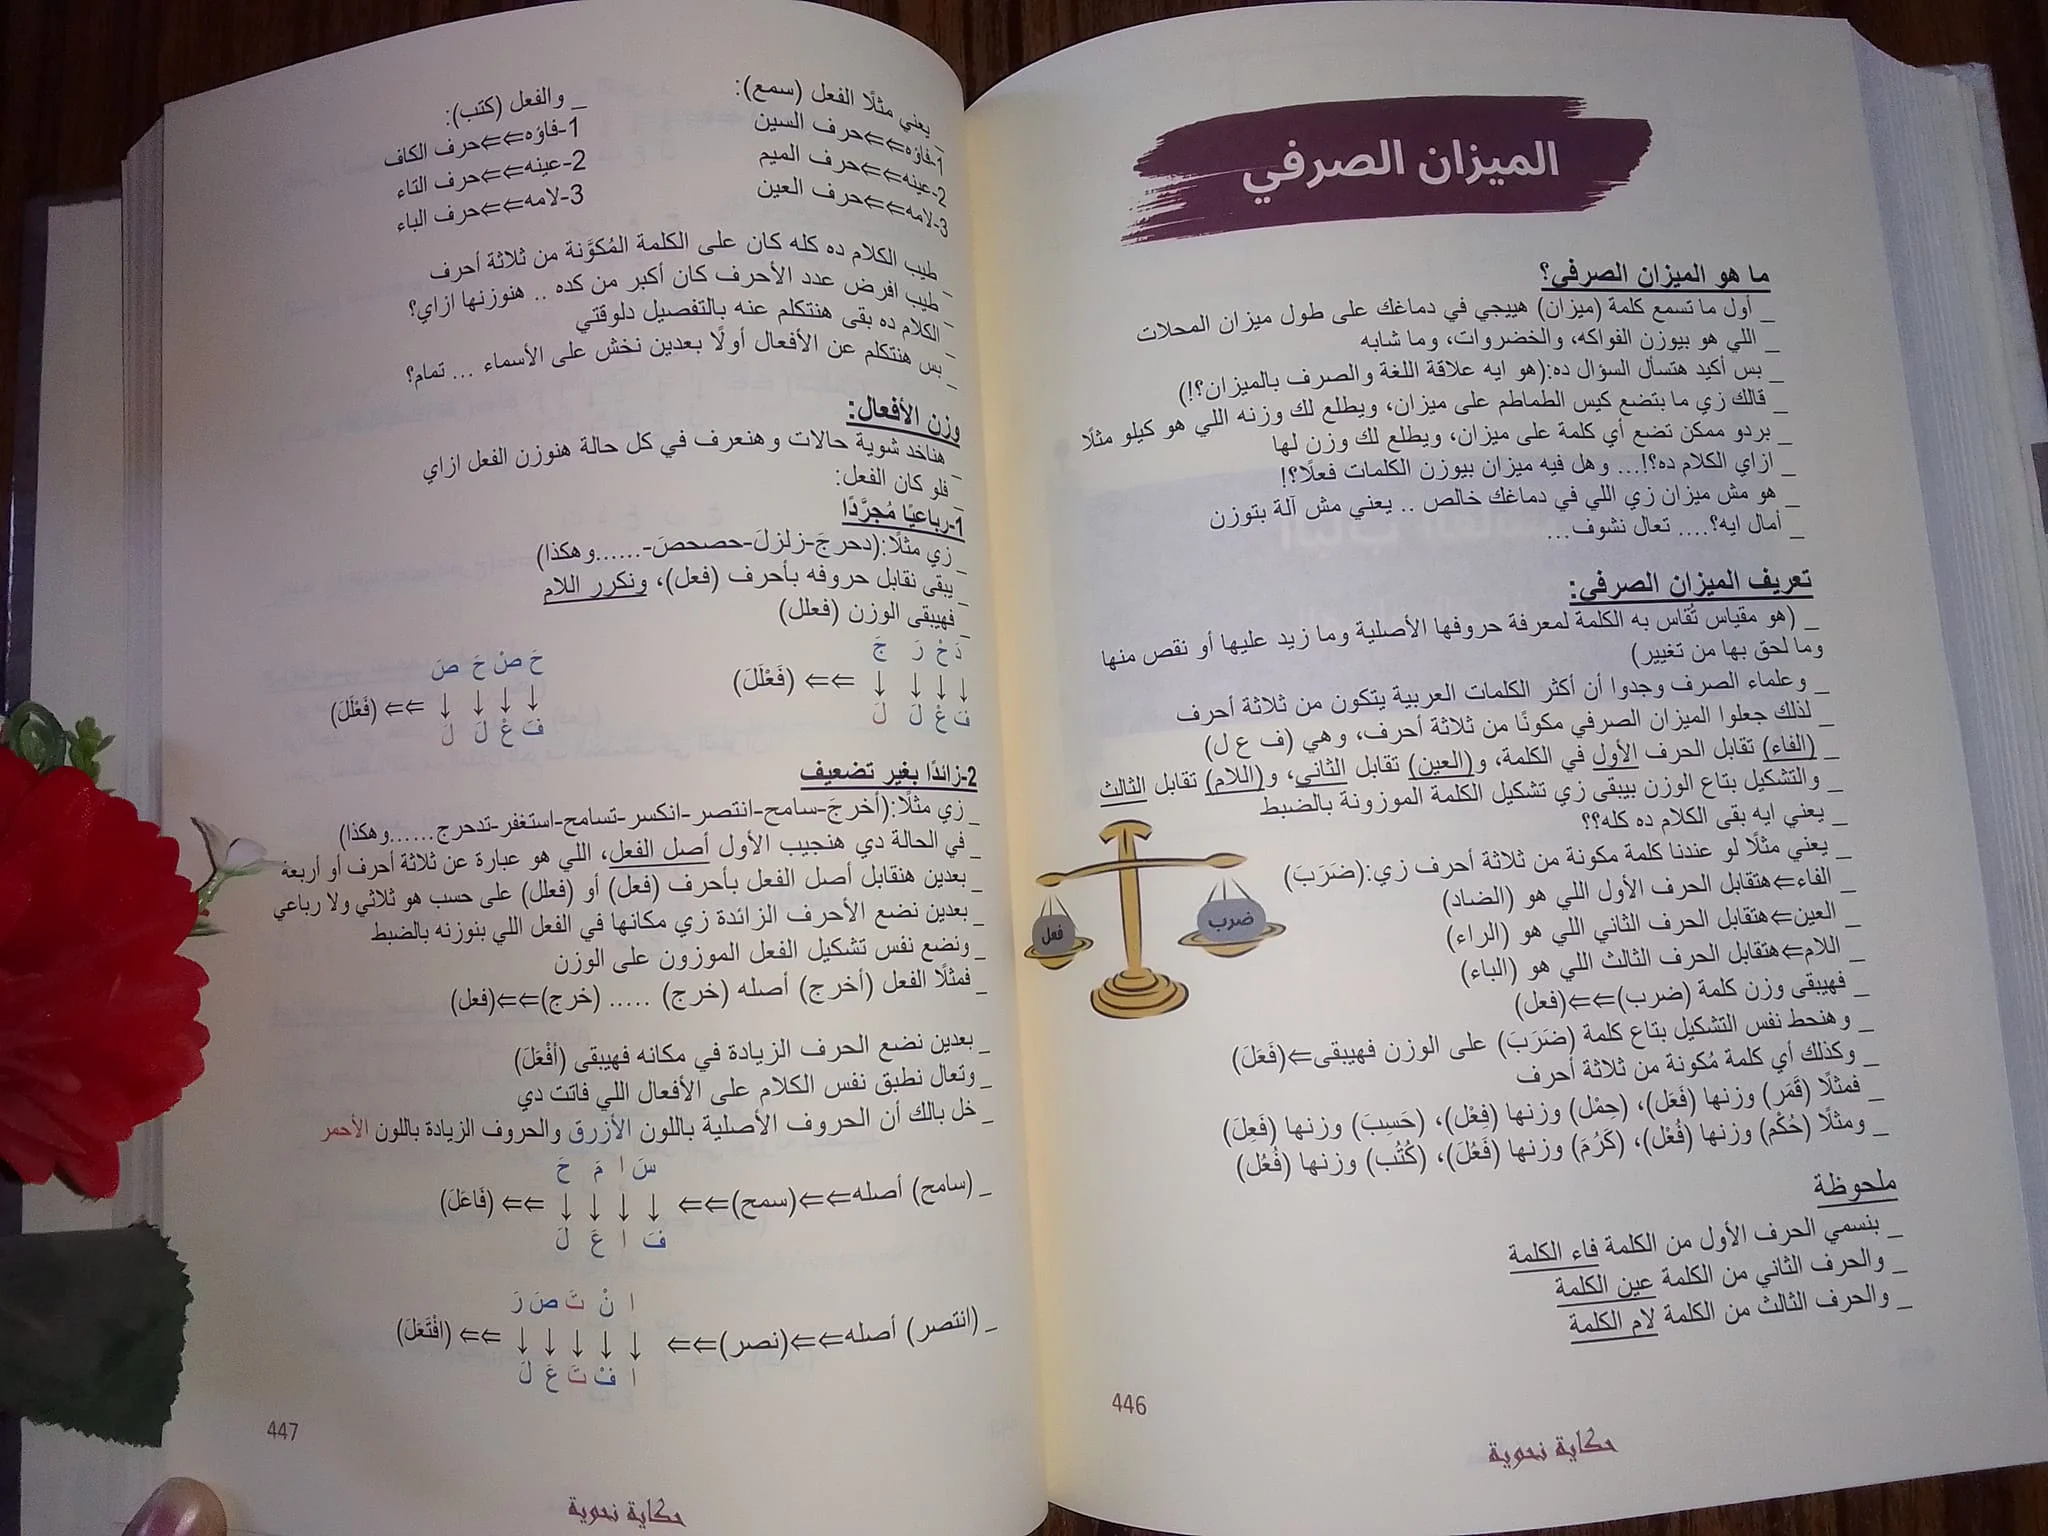 الميزان الصرفي
ما هو الميزان الصرفي؟
_ أول ما تسمع كلمة (ميزان) هييجي في دماغك على طول ميزان المحلات
_ اللي هو بيوزن الفواكه، والخضروات، وما شابه
_ بس أكيد هتسأل السؤال ده:(هو ايه علاقة اللغة والصرف بالميزان؟!)
_ قالك زي ما بتضع كيس الطماطم على ميزان، ويطلع لك وزنه اللي هو كيلو مثلًا
_ بردو ممكن تضع أي كلمة على ميزان، ويطلع لك وزن لها
_ ازاي الكلام ده؟!... وهل فيه ميزان بيوزن الكلمات فعلًا؟!
_ هو مش ميزان زي اللي في دماغك خالص .. يعني مش آلة بتوزن
_ أمال ايه؟.... تعال نشوف...
تعريف الميزان الصرفي:
_ (هو مقياس تُقاس به الكلمة لمعرفة حروفها الأصلية وما زيد عليها أو نقص منها
وما لحق بها من تغيير)
_ وعلماء الصرف وجدوا أن أكثر الكلمات العربية يتكون من ثلاثة أحرف
_ لذلك جعلوا الميزان الصرفي مكونًا من ثلاثة أحرف، وهي (ف ع ل)
_ (الفاء) تقابل الحرف الأول في الكلمة، و(العين) تقابل الثاني، و(اللام) تقابل الثالث
_ والتشكيل بتاع الوزن بيبقى زي تشكيل الكلمة الموزونة بالضبط
_ يعني ايه بقى الكلام ده كله؟؟
_ يعني مثلًا لو عندنا كلمة مكونة من ثلاثة أحرف زي:(ضَرَبَ)
_ الفاء⇐هتقابل الحرف الأول اللي هو (الضاد)
_ العين⇐هتقابل الحرف الثاني اللي هو (الراء)
_ اللام⇐هتقابل الحرف الثالث اللي هو (الباء)
_ فهيبقى وزن كلمة (ضرب)⇐⇐(فعل)
_ وهنحط نفس التشكيل بتاع كلمة (ضَرَبَ) على الوزن فهيبقى⇐(فَعَلَ)
_ وكذلك أي كلمة مُكونة من ثلاثة أحرف
_ فمثلًا (قَمَر) وزنها (فَعَل)، (حِمْل) وزنها (فِعْل)، (حَسِبَ) وزنها (فَعِلَ)
_ ومثلًا (حُكْم) وزنها (فُعْل)، (كَرُمَ) وزنها (فَعُلَ)، (كُتُب) وزنها (فُعُل)
ضرب
فعل
ملحوظة
_ بنسمي الحرف الأول من الكلمة فاء الكلمة
_ والحرف الثاني من الكلمة عين الكلمة
_ والحرف الثالث من الكلمة لام الكلمة
446
حكاية نحوية
_ يعني مثلًا الفعل (سمع):
1-فاؤه⇐⇐حرف السين
2-عينه⇐⇐حرف الميم
3-لامه⇐⇐حرف العين
_ والفعل (كتب):
1-فاؤه⇐⇐حرف الكاف
2-عينه⇐⇐حرف التاء
3-لامه⇐⇐حرف الباء
_ طيب الكلام ده كله كان على الكلمة المُكوَّنة من ثلاثة أحرف
_ طيب افرض عدد الأحرف كان أكبر من كده .. هنوزنها ازاي؟
_ الكلام ده بقى هنتكلم عنه بالتفصيل دلوقتي
_ بس هنتكلم عن الأفعال أولًا بعدين نخش على الأسماء ... تمام؟
وزن الأفعال:
_ هناخد شوية حالات وهنعرف في كل حالة هنوزن الفعل ازاي
_ فلو كان الفعل:
1-رباعيًا مُجرَّدًا
_ زي مثلًا:(دحرجَ-زلزلَ-حصحصَ-......وهكذا)
_ يبقى نقابل حروفه بأحرف (فعل)، ونكرر اللام
_ فهيبقى الوزن (فعلل)
دَ حْ رَ جَ
↓ ↓ ↓ ↓ ⇐⇐ (فَعْلَلَ)
فَ عْ لَ لَ
حَ صْ حَ صَ
↓ ↓ ↓ ↓ ⇐⇐ (فَعْلَلَ)
فَ عْ لَ لَ
2-زائدًا بغير تضعيف
_ زي مثلًا:(أخرجَ-سامح-انتصر-انكسر-تسامح-استغفر-تدحرج......وهكذا)
_ في الحالة دي هنجيب الأول أصل الفعل، اللي هو عبارة عن ثلاثة أحرف أو أربعة
_ بعدين هنقابل أصل الفعل بأحرف (فعل) أو (فعلل) على حسب هو ثلاثي ولا رباعي
_ بعدين نضع الأحرف الزائدة زي مكانها في الفعل اللي بنوزنه بالضبط
_ ونضع نفس تشكيل الفعل الموزون على الوزن
_ فمثلًا الفعل (أخرج) أصله (خرج) ..... (خرج)⇐⇐(فعل)
_ بعدين نضع الحرف الزيادة في مكانه فهيبقى (أفْعَلَ)
_ وتعال نطبق نفس الكلام على الأفعال اللي فاتت دي
_ خل بالك أن الحروف الأصلية باللون الأزرق والحروف الزيادة باللون الأحمر
سَ ا مَ حَ
_ (سامح) أصله⇐⇐(سمح)⇐⇐ ↓ ↓ ↓ ↓ ⇐⇐ (فَاعَلَ)
فَ ا عَ لَ
ا نْ تَ صَ رَ
_ (انتصر) أصله⇐⇐(نصر)⇐⇐ ↓ ↓ ↓ ↓ ↓ ⇐⇐ (افْتَعَلَ)
ا فْ تَ عَ لَ
447
حكاية نحوية